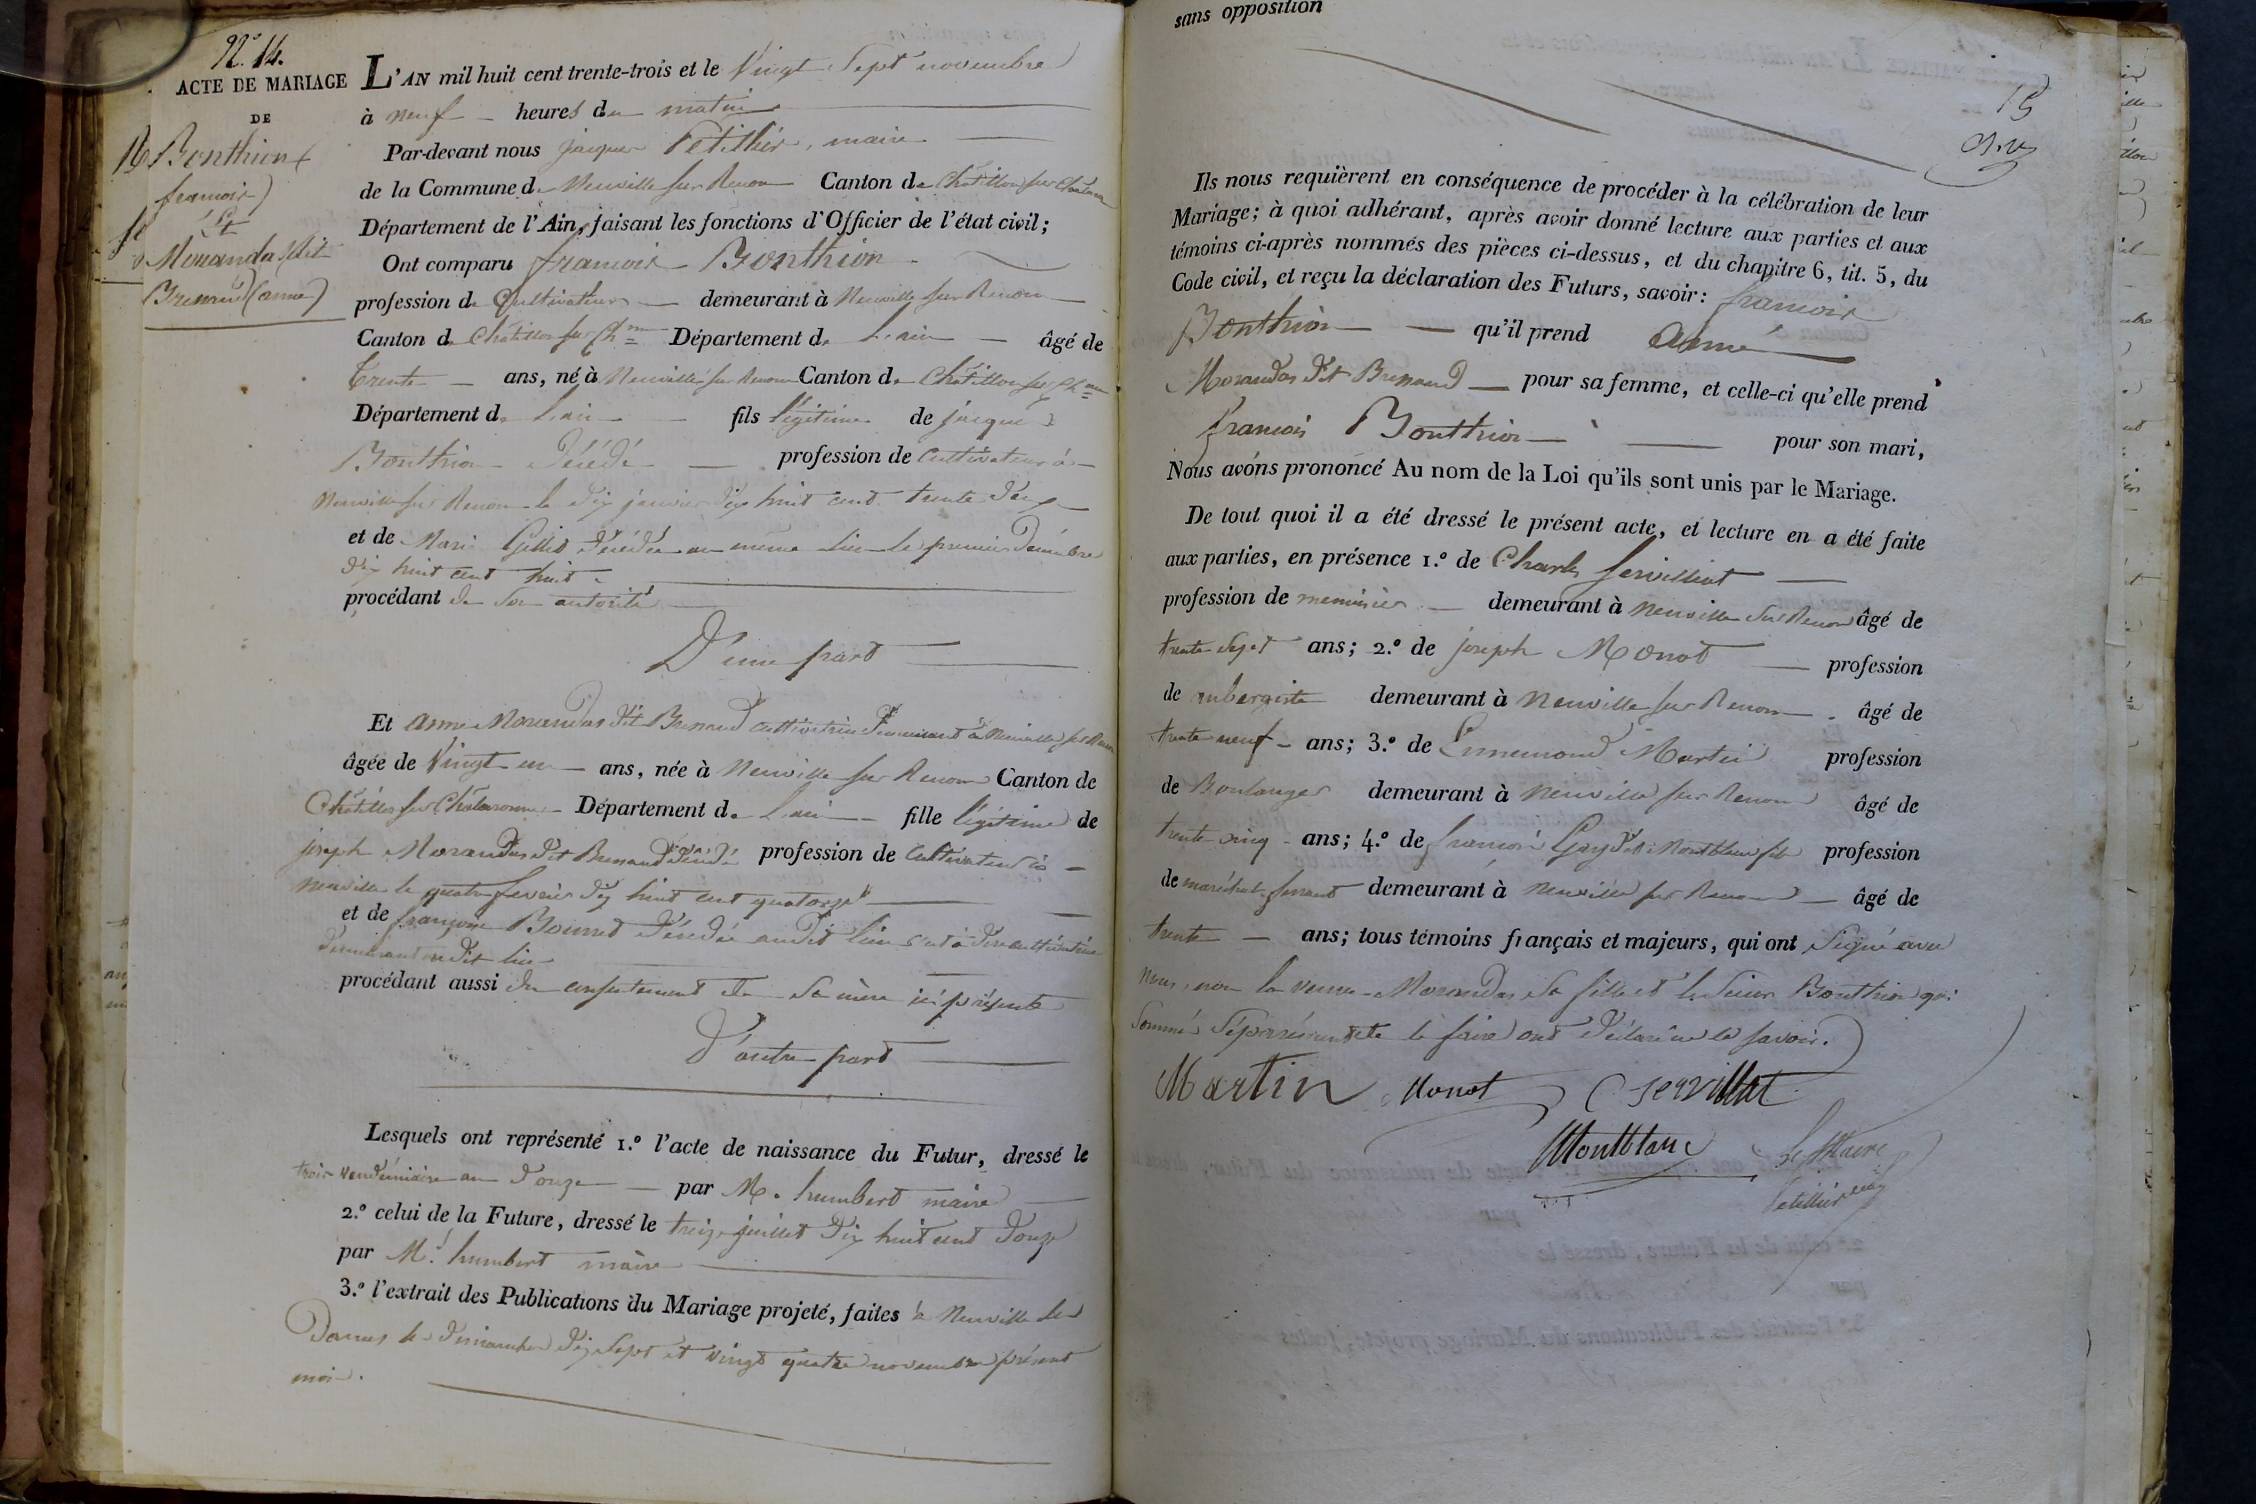 N.° 14.
ACTE DE MARIAGE
DE
Bonthion
françois
Et
Morandas dit
Brenaud (anne)
L'AN mil huit cent trente-trois et le Vingt Sept novembre
à neuf heures du matin
Par-devant nous jacques Petithier, maire
de la Commune de Neuville sur Renom Canton de Châtillon sur Chalaronne
Département de l'Ain, faisant les fonctions d'Officier de l'état civil;
Ont comparu françois Bonthion
profession de Cultivateur demeurant à Neuville sur Renom
Canton de Châtillon sur Ch.ne Département de L'ain âgé de
trente ans, né à Neuville sur Renom Canton de Châtillon sur Ch.ne
Département de L'ain fils légitime de jacques
Bonthion décédé profession de Cultivateur à
Neuville sur Renom le dix janvier dix huit cent trente deux
et de Marie décédée au même lieu le premier
dix huit cent huit
procédant de son autorité
D'une part
Et anne Morandas dit Brenaud cultivatrice demeurant à Neuville sur Renom
âgée de Vingt un ans, née à Neuville sur Renom Canton de
Châtillon sur Chalaronne Département de L'ain fille légitime de
joseph Morandas dit Brenaud décédé profession de Cultivateur à
Neuville le quatre fevrier dix huit cent quatorze
et de françoise Bonnet
demeurant audit lieu
procédant aussi du consentement de Sa mère ici présente
D'autre part
Lesquels ont représenté 1.° l'acte de naissance du Futur, dressé le
trois vendémiaire an douze par M. humbert maire
2.° celui de la Future, dressé le treize juillet dix huit cent douze
par M.r humbert maire
3.° l'extrait des Publications du Mariage projeté, faites à Neuville les
Dames les dimanches dix sept et vingt quatre novembre présent
mois.
sans opposition
15
Ils nous requièrent en conséquence de procéder à la célébration de leur
Mariage; à quoi adhérant, après avoir donné lecture aux parties et aux
témoins ci-après nommés des pièces ci-dessus, et du chapitre 6, tit. 5, du
Code civil, et reçu la déclaration des Futurs, savoir: françois
Bonthion qu'il prend anne
Morandas dit Brenaud pour sa femme, et celle-ci qu'elle prend
françois Bonthion pour son mari,
Nous avons prononcé Au nom de la Loi qu'ils sont unis par le Mariage.
De tout quoi il a été dressé le présent acte, et lecture en a été faite
aux parties, en présence 1.° de Charles Servillat
profession de menuisier demeurant à Neuville sur Renom âgé de
trente Sept ans; 2.° de joseph Monot profession
de aubergiste demeurant à Neuville sur Renom âgé de
trente neuf ans; 3.° de Ennemond Martin profession
de Boulanger demeurant à Neuville sur Renom âgé de
trente cinq ans; 4.° de françois Gay dit Montblanc fils profession
de maréchal ferrant demeurant à Neuville sur Renom âgé de
trente ans; tous témoins français et majeurs, qui ont Signé avec
nous, non la veuve Morandas sa fille et le Sieur Bonthion qui
Sommés Séparément de le faire ont déclaré ne le savoir.
Martin Monot C Servillat
Montblanc Le Maire
Petithier